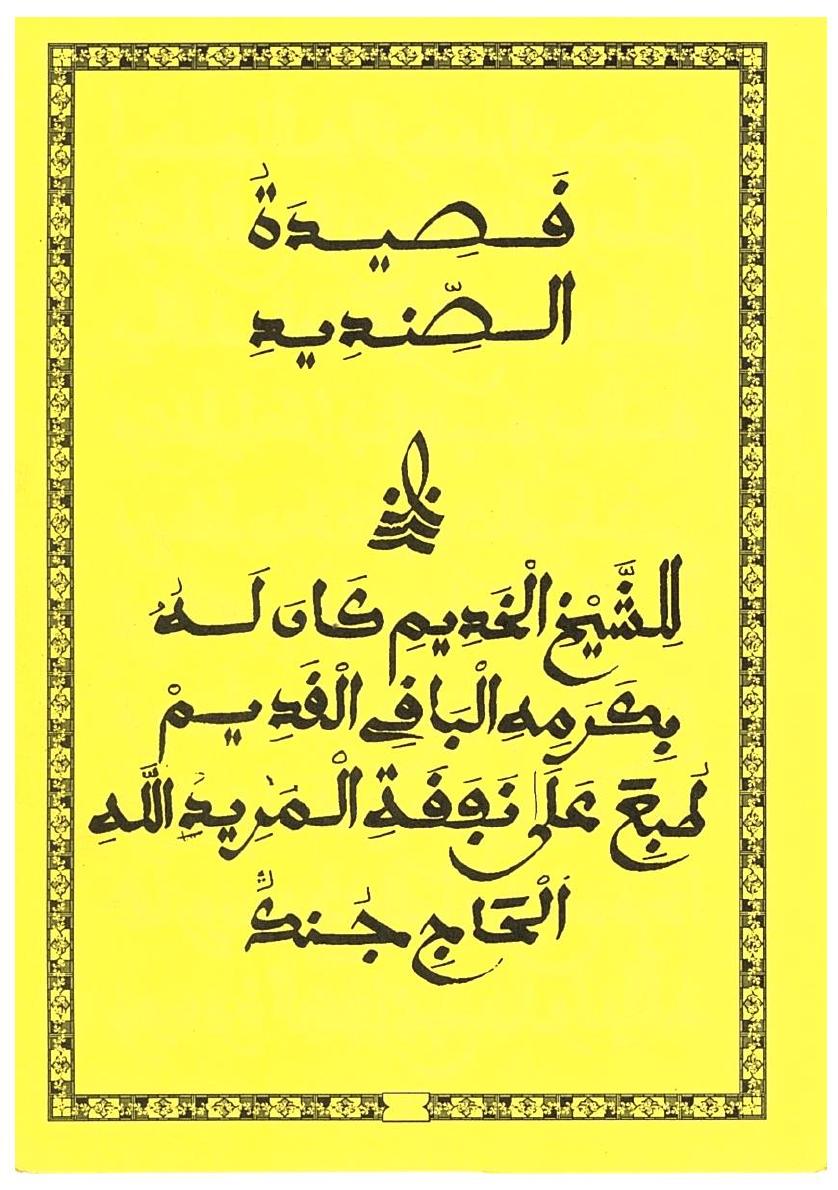 قَصِيدَةُ
الصِّنْدِيدِ
لِلشَّيْخِ الْخَدِيمِ كَانَ لَهُ
بِكَرَمِهِ الْبَاقِي الْقَدِيمْ
طُبِعَ عَلَى نَفَقَةِ الْمُرِيدُ اللَّهِ
اَلْحَاجِ جُنڭُ